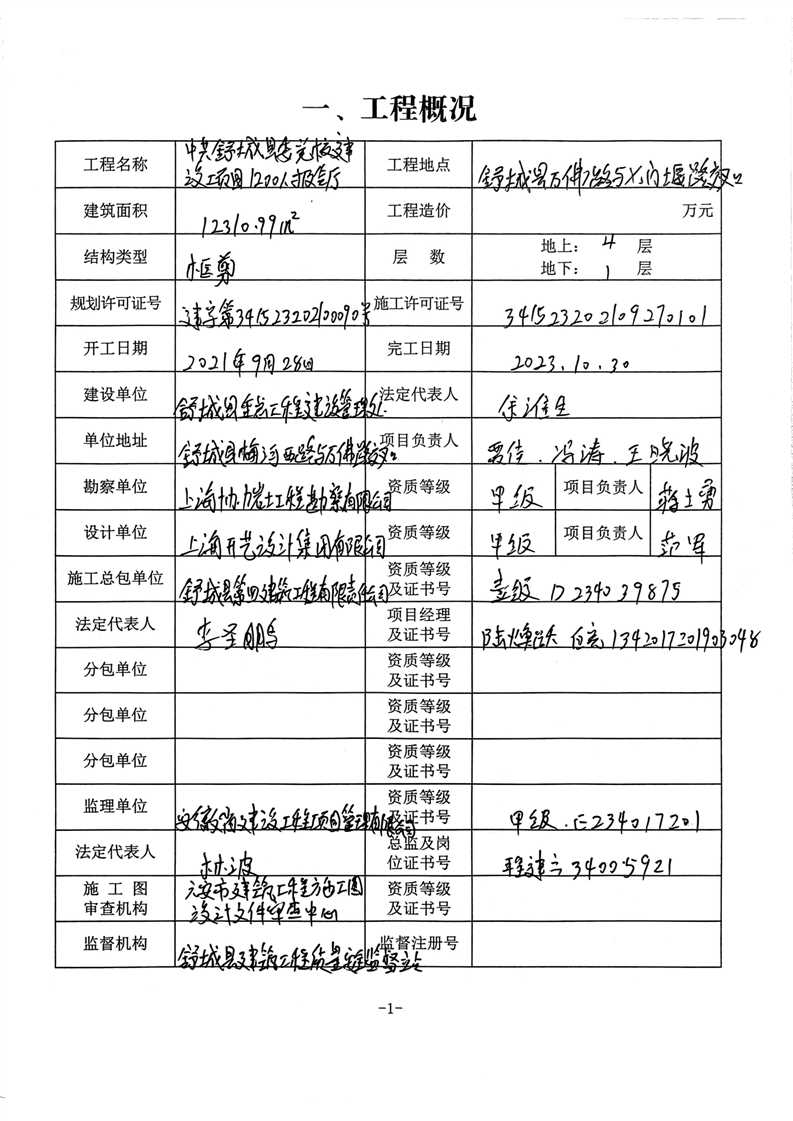 一、工程概况
工程名称 中共舒城县委党校建设工项目1200人报告厅 工程地点 舒城县万佛路与 堰路交叉口
建筑面积 12310.99m² 工程造价 万元
结构类型 框剪 层数 地上：4层 地下：1层
规划许可证号 建字第341523202100090号 施工许可证号 341523202109270101
开工日期 2021年9月28日 完工日期 2023.10.30
建设单位 舒城县重点工程建设管理处 法定代表人
单位地址 舒城县梅河西路与万佛路交叉口 项目负责人 冯涛.王晓波
勘察单位 上海协力岩土工程勘察有限公司 资质等级 甲级 项目负责人 蒋士勇
设计单位 上海开艺设计集团有限公司 资质等级 甲级 项目负责人 范军
施工总包单位 舒城县第四建筑工程有限责任公司 资质等级及证书号 壹级 D234039875
法定代表人 李圣鹏 项目经理及证书号 1342017201903048
分包单位 资质等级及证书号
分包单位 资质等级及证书号
分包单位 资质等级及证书号
监理单位 安徽 建设工程项目管理有限公司 资质等级及证书号 甲级.E234017201
法定代表人 林波 总监及岗位证书号 34005921
施工图审查机构 六安市建筑工程施工图设计文件审查中心 资质等级及证书号
监督机构 舒城县建筑工程质量安全监督站 监督注册号
-1-